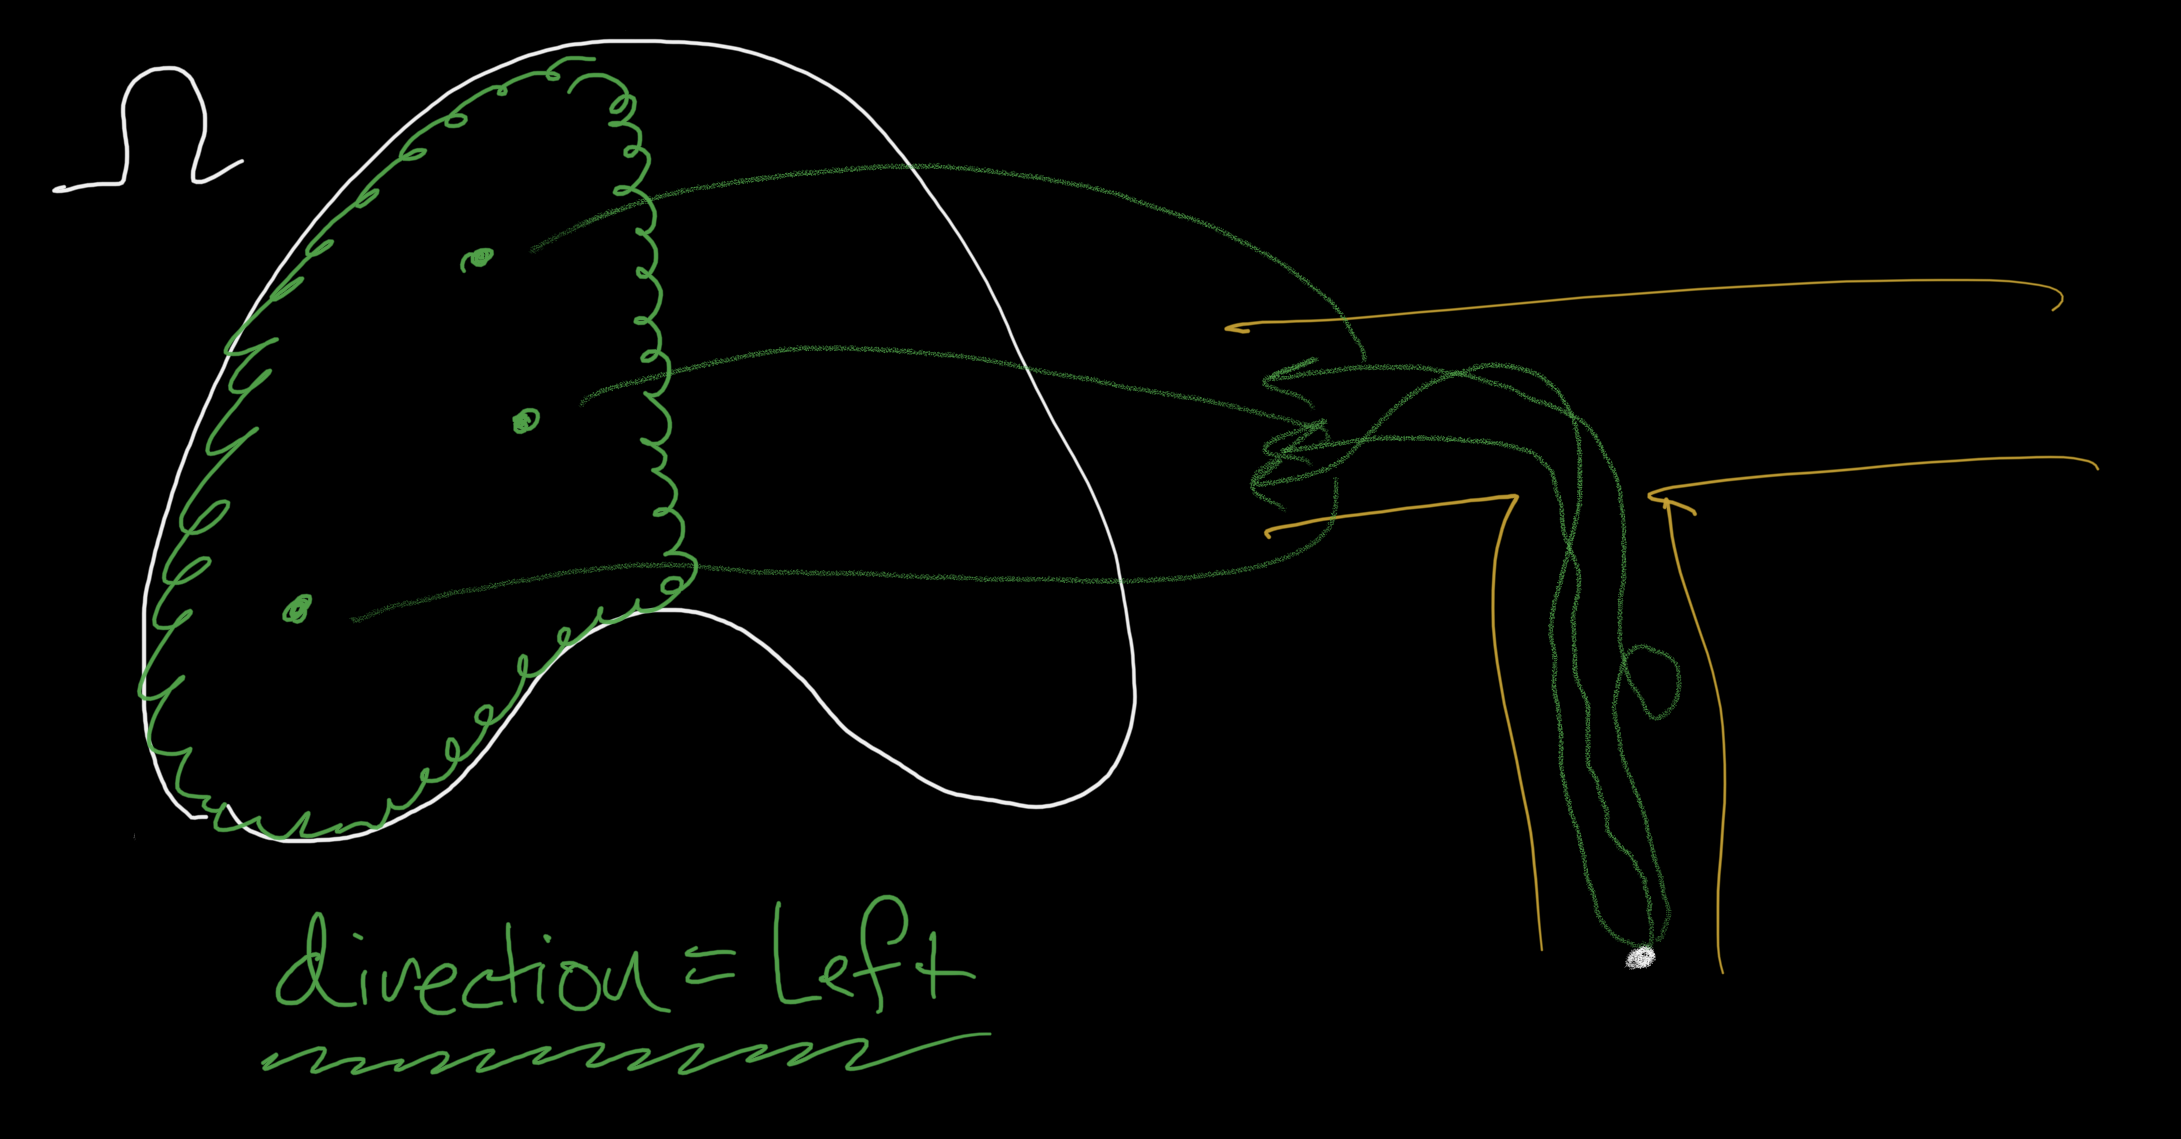 Ω
direction = Left